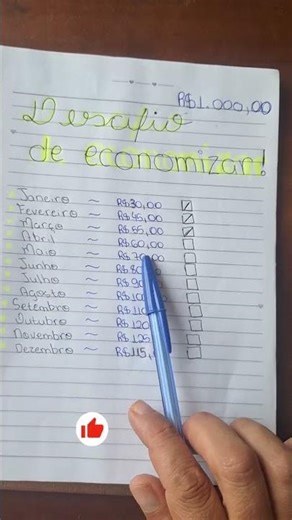 R$1.000,00
Desafio
de economizar!
Janeiro ~ R$30,00
Fevereiro ~ R$45,00
Março ~ R$55,00
Abril ~ R$60,00
Maio ~ R$70,00
Junho ~ R$80
Julho ~ R$90
Agosto ~ R$10
Setembro ~ R$110
Outubro ~ R$120
Novembro ~ R$125
Dezembro ~ R$115,